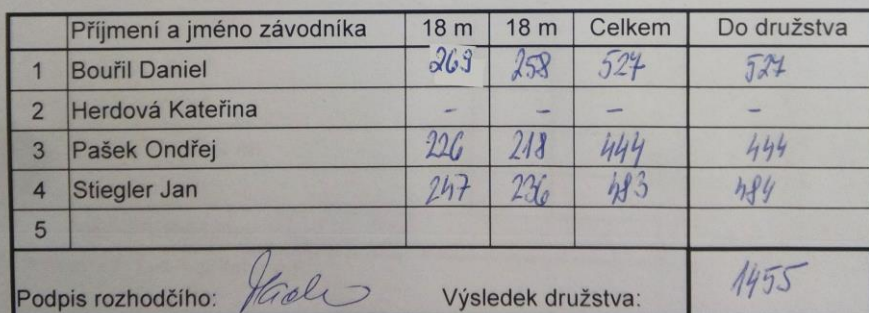 Příjmení a jméno závodníka 18 m 18 m Celkem Do družstva
1 Bouřil Daniel 269 258 527 527
2 Herdová Kateřina - - - -
3 Pašek Ondřej 226 218 444 444
4 Stiegler Jan 247 236 483 484
5
Podpis rozhodčího: Výsledek družstva: 1455